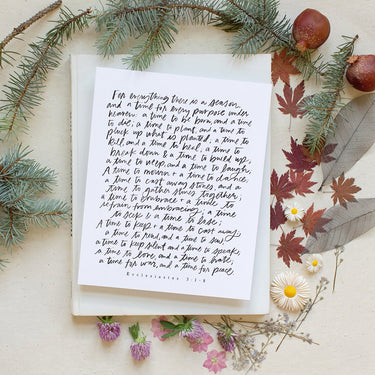 For everything there is a season,
and a time for every purpose under
heaven: a time to be born, and a time
to die; a time to plant, and a time to
pluck up what is planted; a time to
kill, and a time to heal; a time to
break down & a time to build up;
a time to weep, and a time to laugh;
A time to mourn & a time to dance;
a time to cast away stones, and a
time to gather stones together;
a time to embrace & a time to
refrain from embracing; a time
to seek & a time to lose;
A time to keep & a time to cast away;
a time to rend, and a time to sew;
a time to keep silent and a time to speak;
a time to love, and a time to hate;
a time for war, and a time for peace.
Ecclesiastes 3:1-8